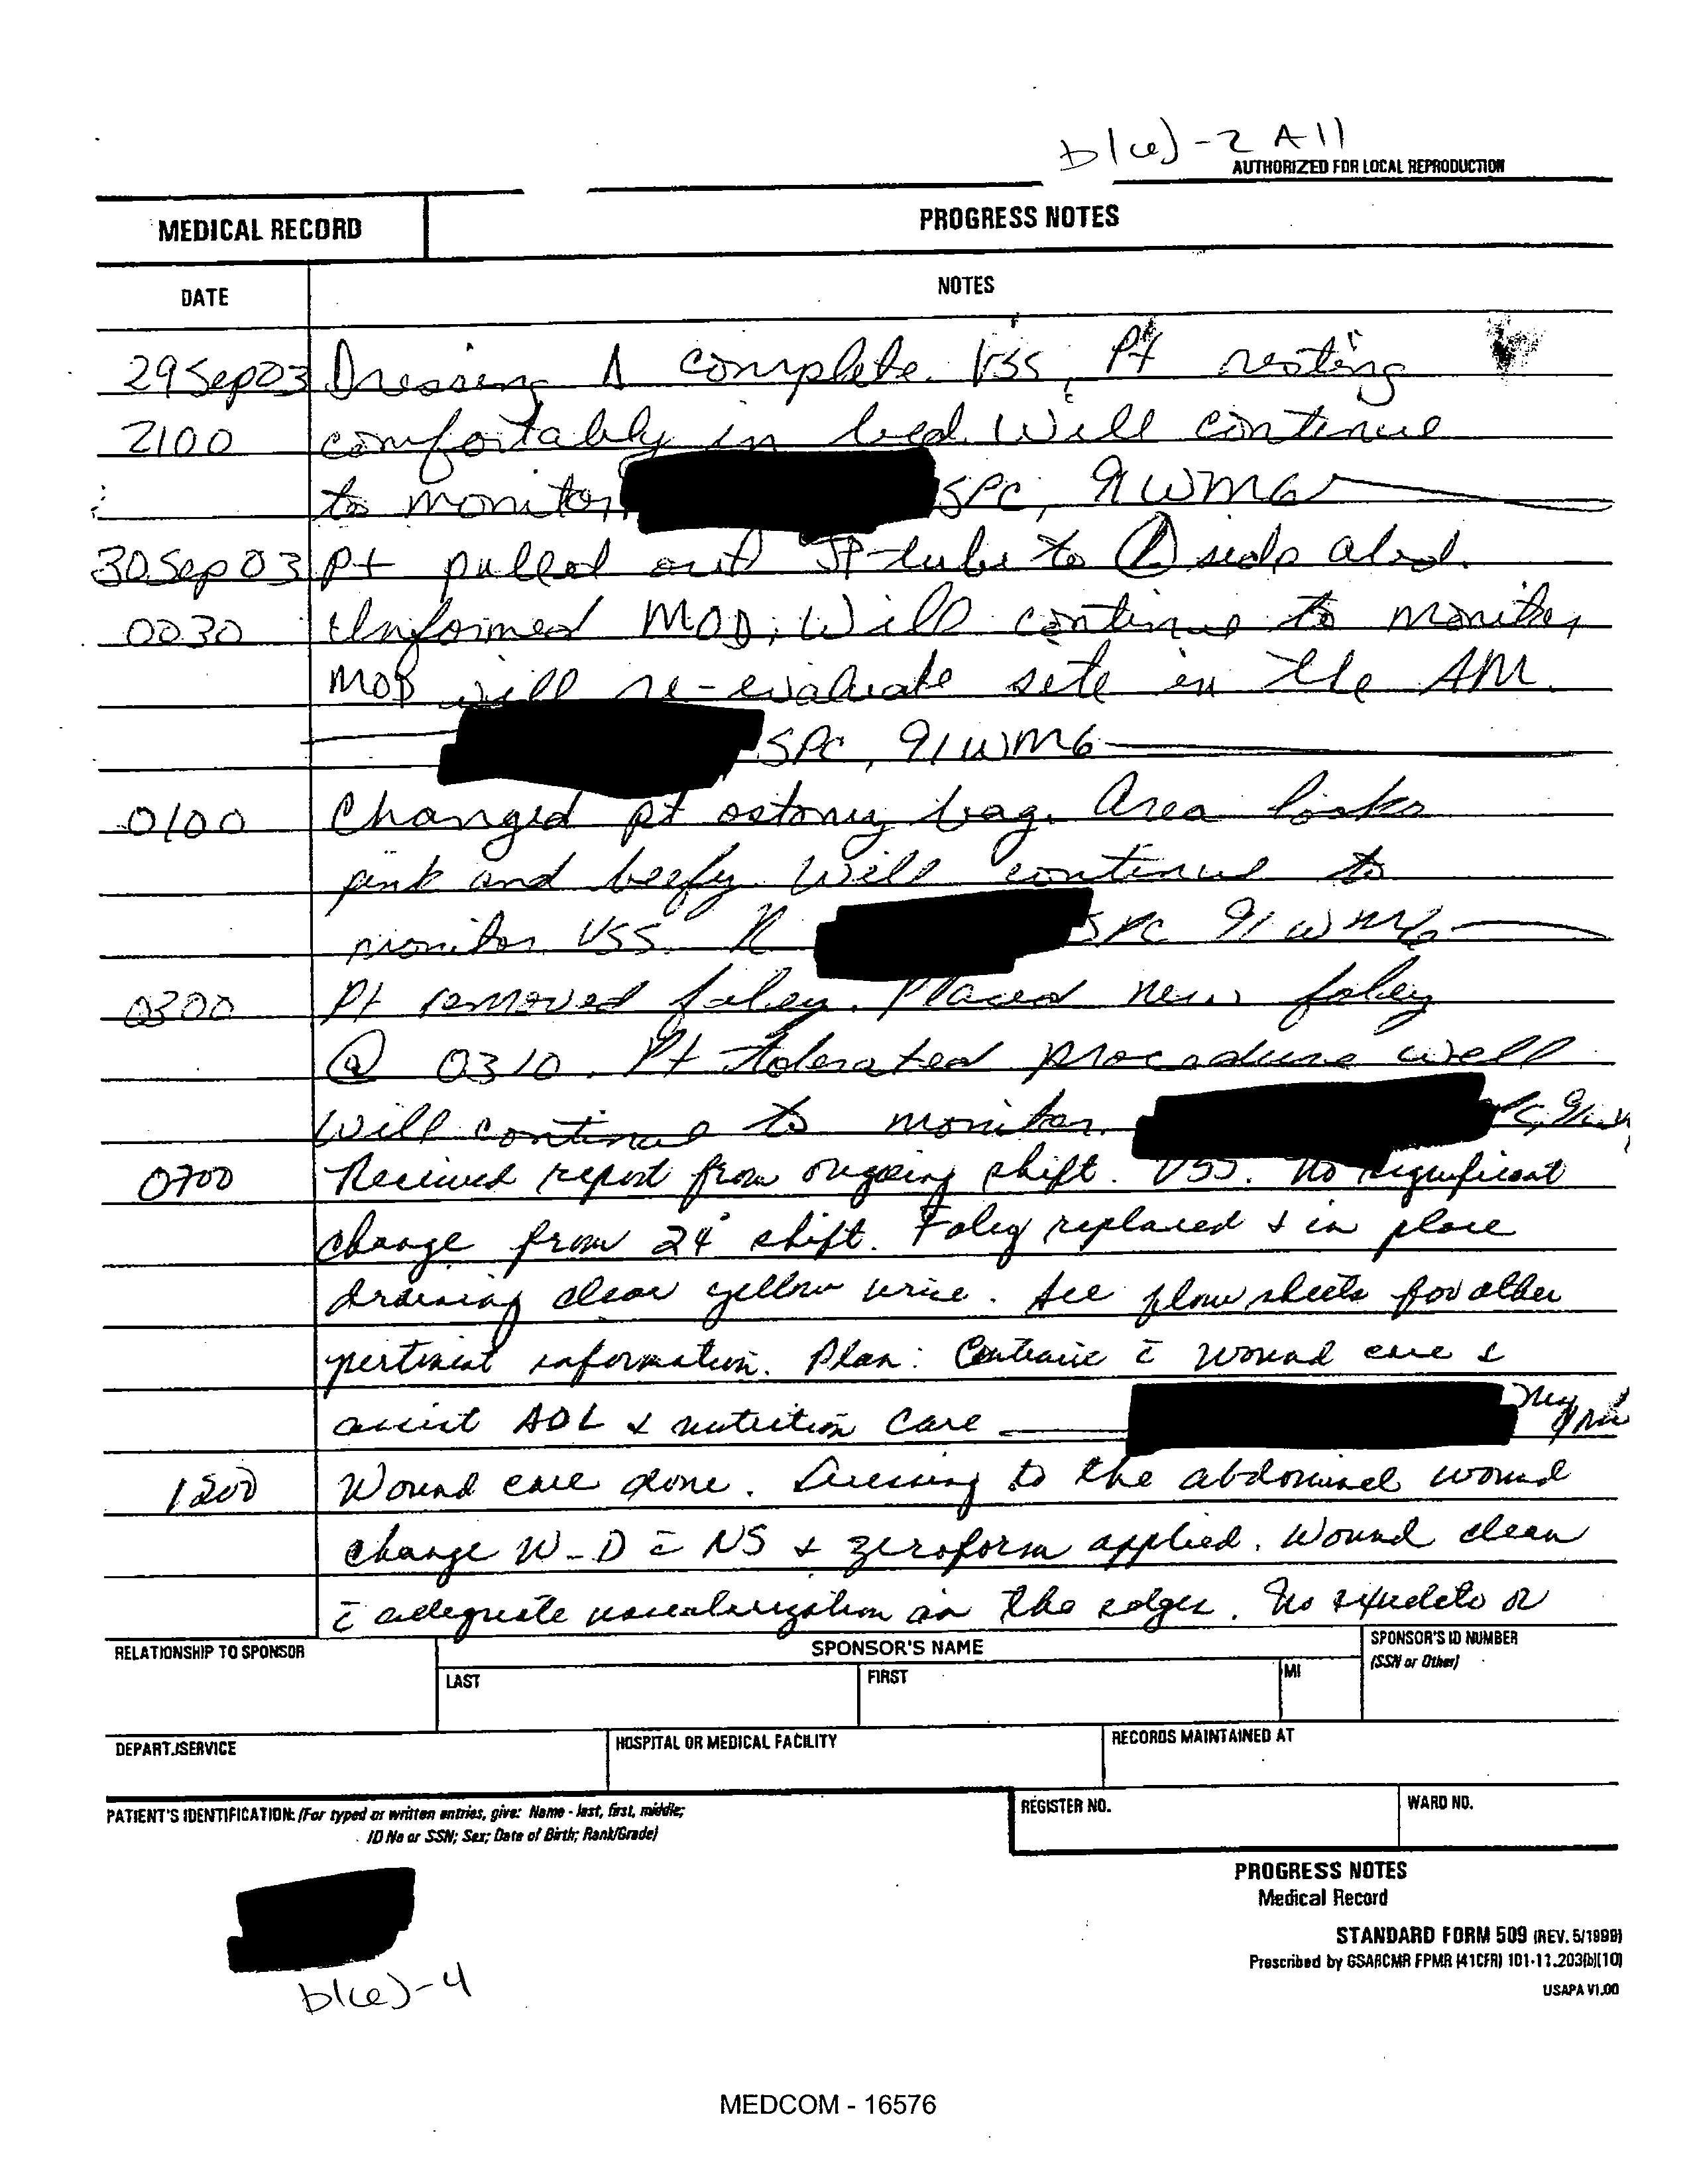 b(6)-2 All
AUTHORIZED FOR LOCAL REPRODUCTION
MEDICAL RECORD
PROGRESS NOTES
DATE
NOTES
29Sep03 Dressing Δ complete. VSS, Pt resting
2100 comfortably in bed. Will continue
to monitor, SPC, 91WM6
30Sep03 Pt pulled out JP-tube to side abd.
0030 Informed MOD. Will continue to monitor,
MOD will re-evaluate site in the AM.
SPC, 91WM6
0100 Changed pt ostomy bag. Area looks
pink and beefy. Will continue to
monitor VSS. SPC 91WM6
0300 Pt removed foley. Placed new foley
@ 0310. Pt tolerated procedure well
will continue to monitor.
0700 Received report from ongoing shift. VSS. No significant
change from 24° shift. Foley replaced & in place
draining clear yellow urine. See flow sheets for other
pertinent information. Plan: Continue c̄ wound care &
assist ADL & nutrition care
1200 Wound care done. Dressing to the abdominal wound
change W-D c̄ NS & zeroform applied. Wound clean
c̄ adequate vascularization on the edges. No exudate or
RELATIONSHIP TO SPONSOR
SPONSOR'S NAME
SPONSOR'S ID NUMBER
(SSN or Other)
LAST
FIRST
MI
DEPART./SERVICE
HOSPITAL OR MEDICAL FACILITY
RECORDS MAINTAINED AT
PATIENT'S IDENTIFICATION: (For typed or written entries, give: Name - last, first, middle;
ID No or SSN; Sex; Date of Birth; Rank/Grade)
REGISTER NO.
WARD NO.
PROGRESS NOTES
Medical Record
STANDARD FORM 509 (REV. 5/1999)
Prescribed by GSA/ICMR FPMR (41CFR) 101-11.203(b)(10)
USAPA V1.00
b(6)-4
MEDCOM - 16576